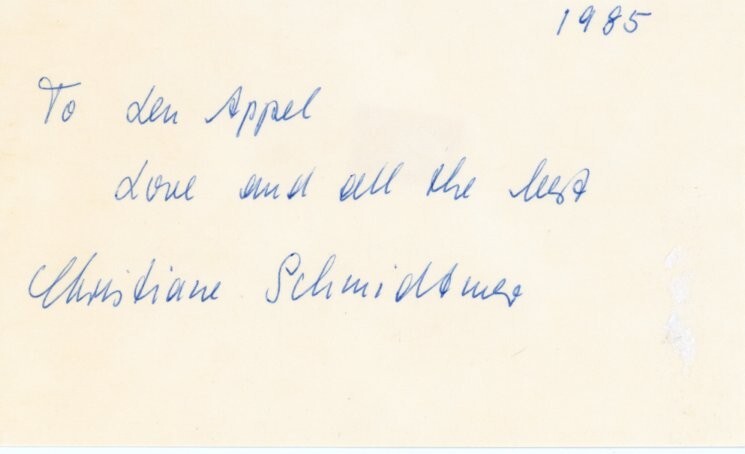 1985
To Len Appel
Love and all the best
Christiane Schmidtmer